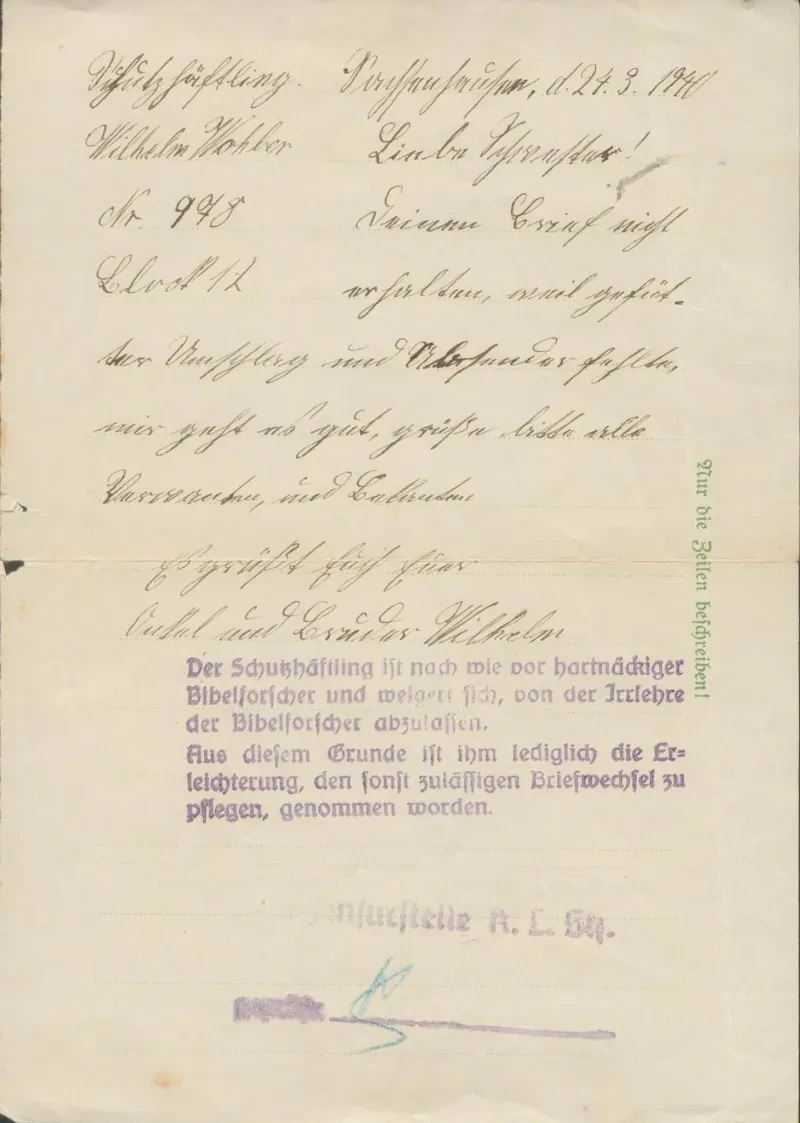 Schutzhäftling. Sachsenhausen, d. 24. 3. 1940
Wilhelm Wohler Liebe Schwester!
Nr. 978 Deinen Brief nicht
Block 12 erhalten, weil gefüt-
ter Umschlag und Absender fehlte,
mir geht es gut, grüße bitte alle
Verwanten, und Bekanten
Es grüßt Euch Euer
Onkel und Bruder Wilhelm
Der Schutzhäftling ist nach wie vor hartnäckiger
Bibelforscher und weigert sich, von der Irrlehre
der Bibelforscher abzulassen.
Aus diesem Grunde ist ihm lediglich die Er=
leichterung, den sonst zulässigen Briefwechsel zu
pflegen, genommen worden.
K. L. Sh.
Nur die Zeilen beschreiben!